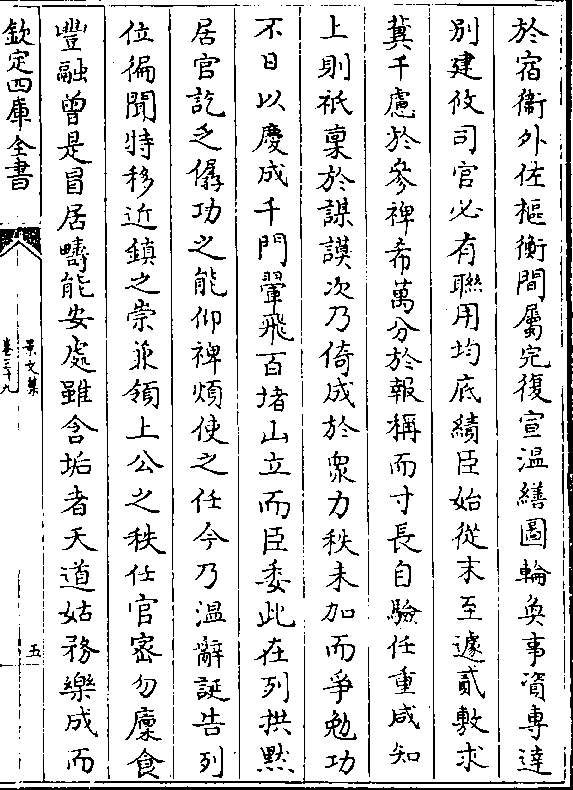 於宿衞外佐樞衡間屬完復宣温繕圖輪奐事資専達
别建攸司官必有聯用均底績臣始從末至遽貳敷求
冀千慮於參禆希萬分於報稱而寸長自驗任重咸知
上則祇稟於謀謨次乃倚成於衆力秩未加而爭勉功
不日以慶成千門翬飛百堵山立而臣委此在列拱黙
居官訖乏僝功之能仰禆煩使之任今乃温辭誕告列
位徧聞特移近鎮之崇兼領上公之秩仕官宻勿廩食
豐融曾是冒居疇能安處雖含垢者天道姑務樂成而
欽定四庫全書
景文集
卷三十九
五